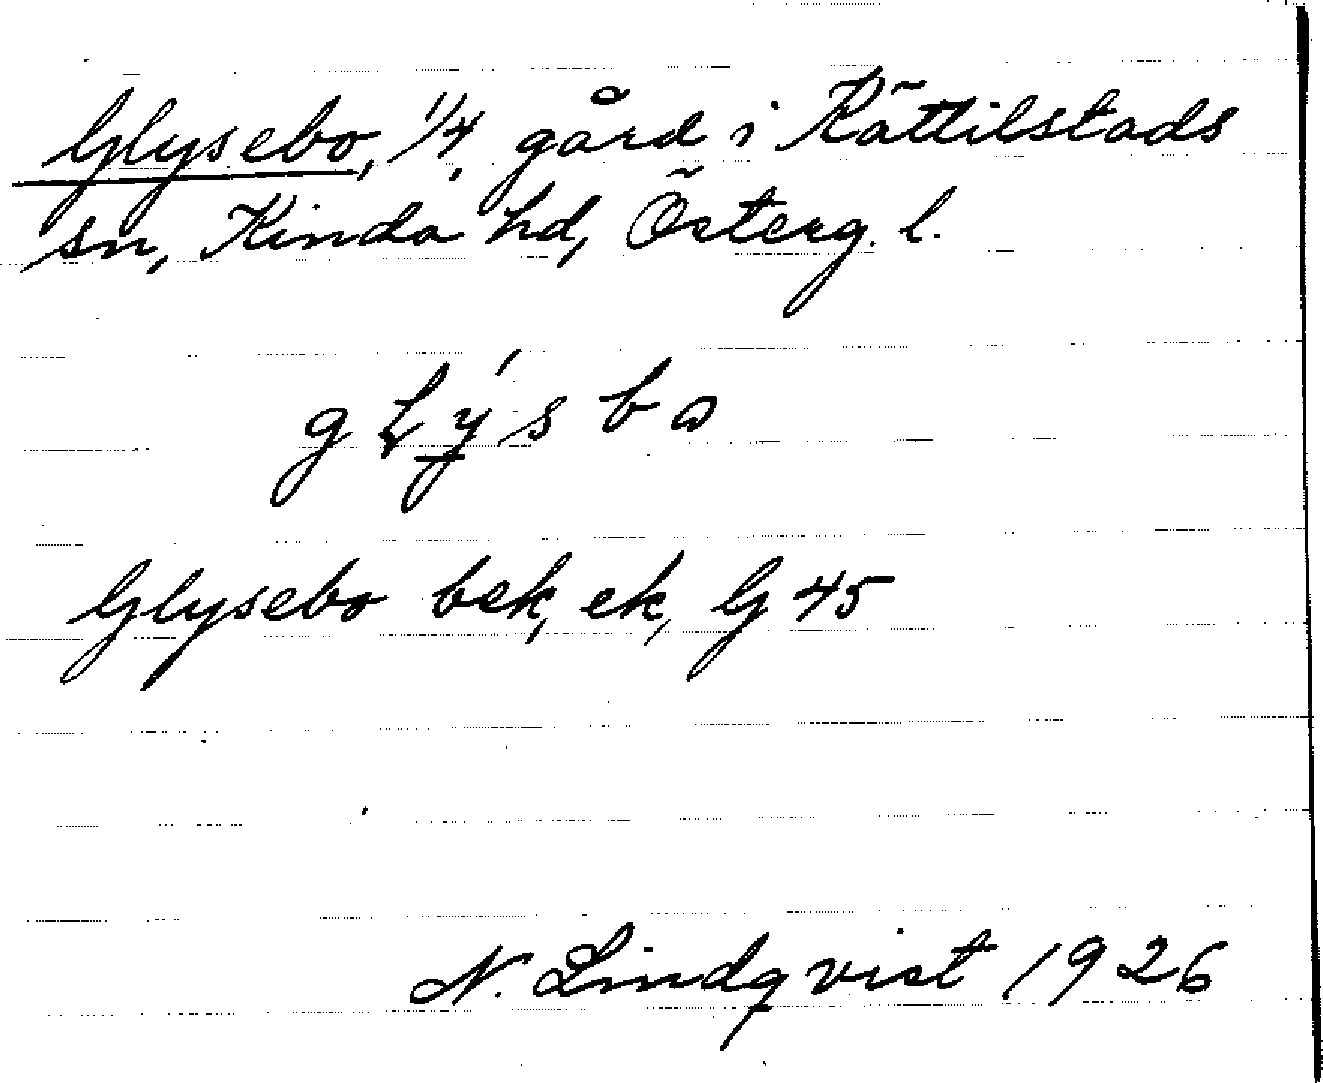 Glysebo, 1/4 gård i Kättilstads
sn, Kinda hd, Österg. l.
gLý̲sbɷ
Glysebo bek, ek, G 45
N. Lindqvist 1926